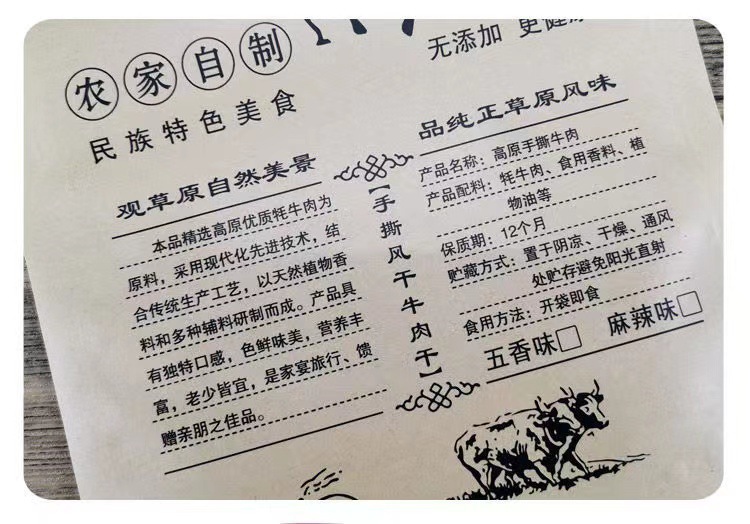 农家自制
民族特色美食
无添加 更健康
观草原自然美景
本品精选高原优质牦牛肉为
原料，采用现代化先进技术，结
合传统生产工艺，以天然植物香
料和多种辅料研制而成。产品具
有独特口感，色鲜味美，营养丰
富，老少皆宜，是家宴旅行、馈
赠亲朋之佳品。
【手撕风干牛肉干】
品纯正草原风味
产品名称：高原手撕牛肉
产品配料：牦牛肉、食用香料、植
物油等
保质期：12个月
贮藏方式：置于阴凉、干燥、通风
处贮存避免阳光直射
食用方法：开袋即食
五香味□ 麻辣味□